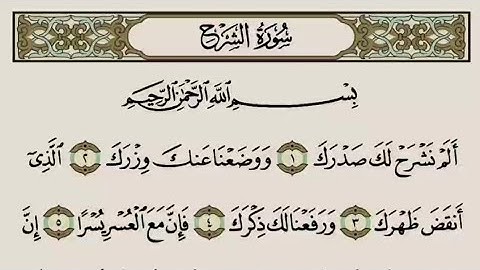 سُورَةُ الشَّرْحِ
بِسْمِ اللَّهِ الرَّحْمَٰنِ الرَّحِيمِ
أَلَمْ نَشْرَحْ لَكَ صَدْرَكَ ١ وَوَضَعْنَا عَنكَ وِزْرَكَ ٢ الَّذِىٓ
أَنقَضَ ظَهْرَكَ ٣ وَرَفَعْنَا لَكَ ذِكْرَكَ ٤ فَإِنَّ مَعَ الْعُسْرِ يُسْرًا ٥ إِنَّ